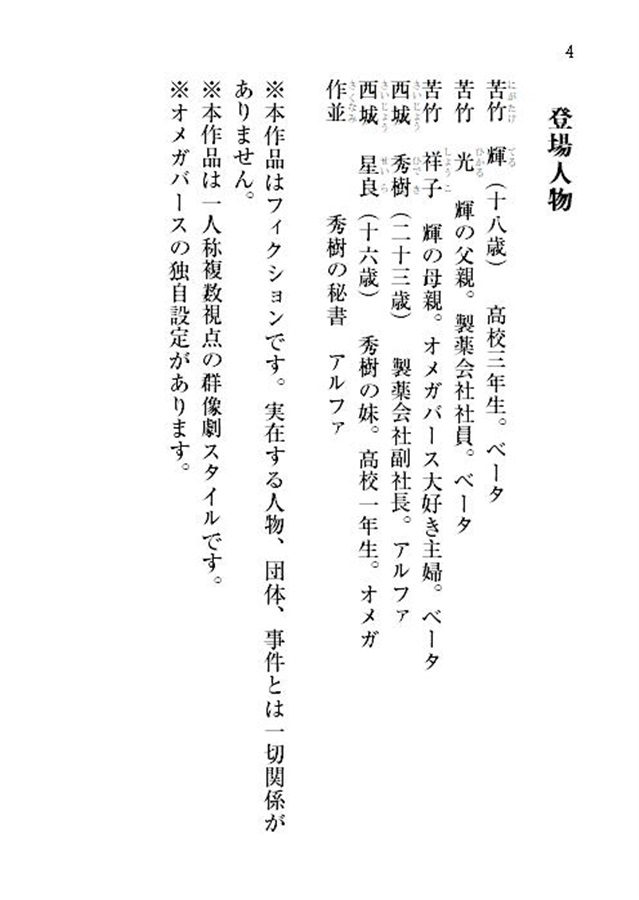 4
登場人物
苦竹　輝（十八歳）　高校三年生。ベータ
苦竹　光　輝の父親。製薬会社社員。ベータ
苦竹　祥子　輝の母親。オメガバース大好き主婦。ベータ
西城　秀樹（二十三歳）　製薬会社副社長。アルファ
西城　星良（十六歳）　秀樹の妹。高校一年生。オメガ
作並　秀樹の秘書　アルファ
※本作品はフィクションです。実在する人物、団体、事件とは一切関係が
ありません。
※本作品は一人称複数視点の群像劇スタイルです。
※オメガバースの独自設定があります。
にがたけ　てる
ひかる
しょうこ
さいじょう　ひでき
さいじょう　せいら
さくなみ